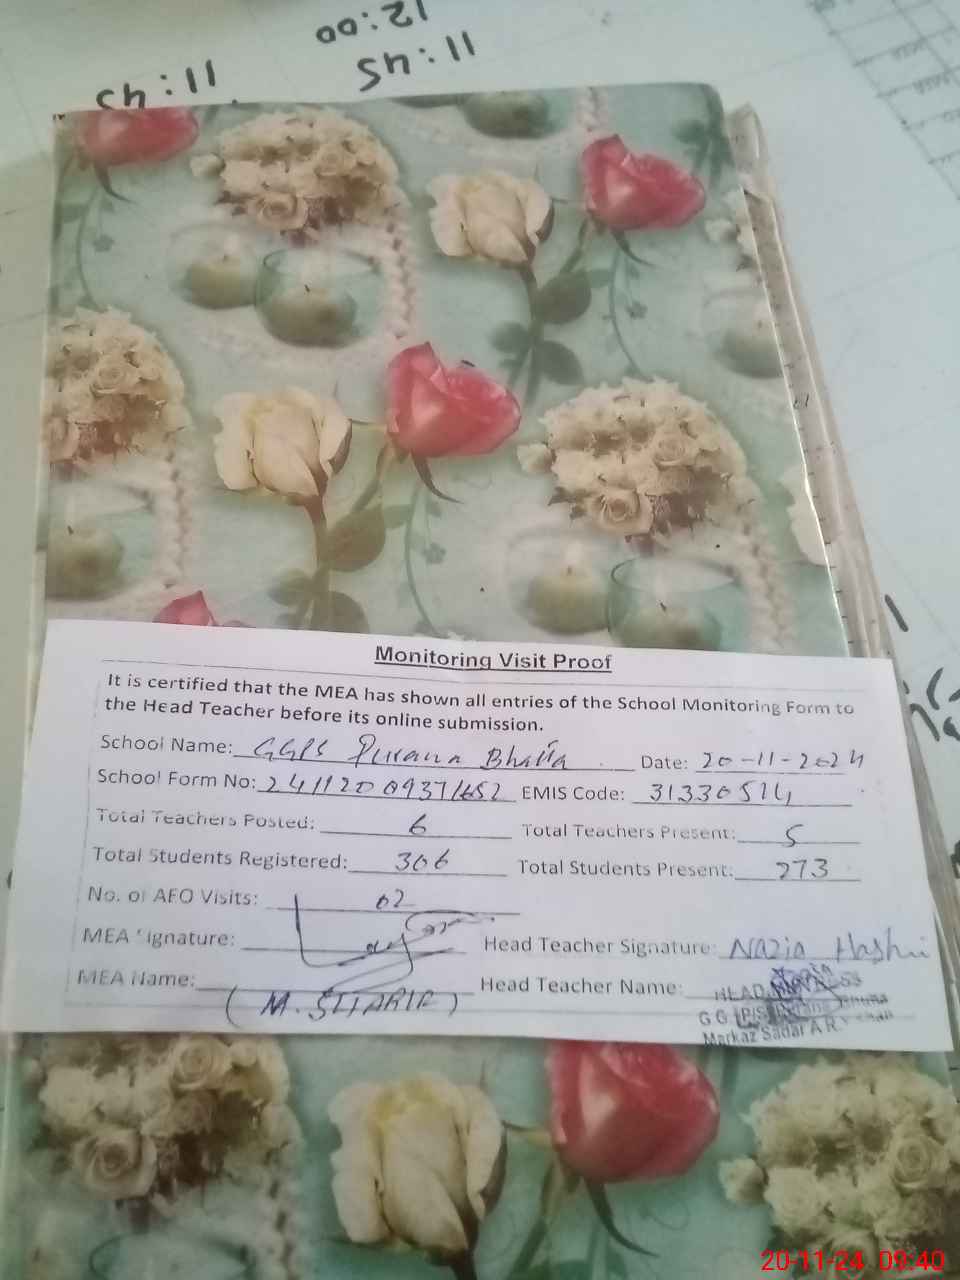 12:00
11:45
11:45
Monitoring Visit Proof
It is certified that the MEA has shown all entries of the School Monitoring Form to
the Head Teacher before its online submission.
School Name: GGPS Purana Bhatta Date: 20-11-2024
School Form No: EMIS Code: 31330514
Total Teachers Posted: 6 Total Teachers Present: 5
Total Students Registered: 306 Total Students Present: 273
No. of AEO Visits: 02
MEA Signature: Head Teacher Signature: Nazia Hashmi
MEA Name: Head Teacher Name:
(M. SHARIF) HEAD MISTRESS
Markaz Sadar
20-11-24 09:40